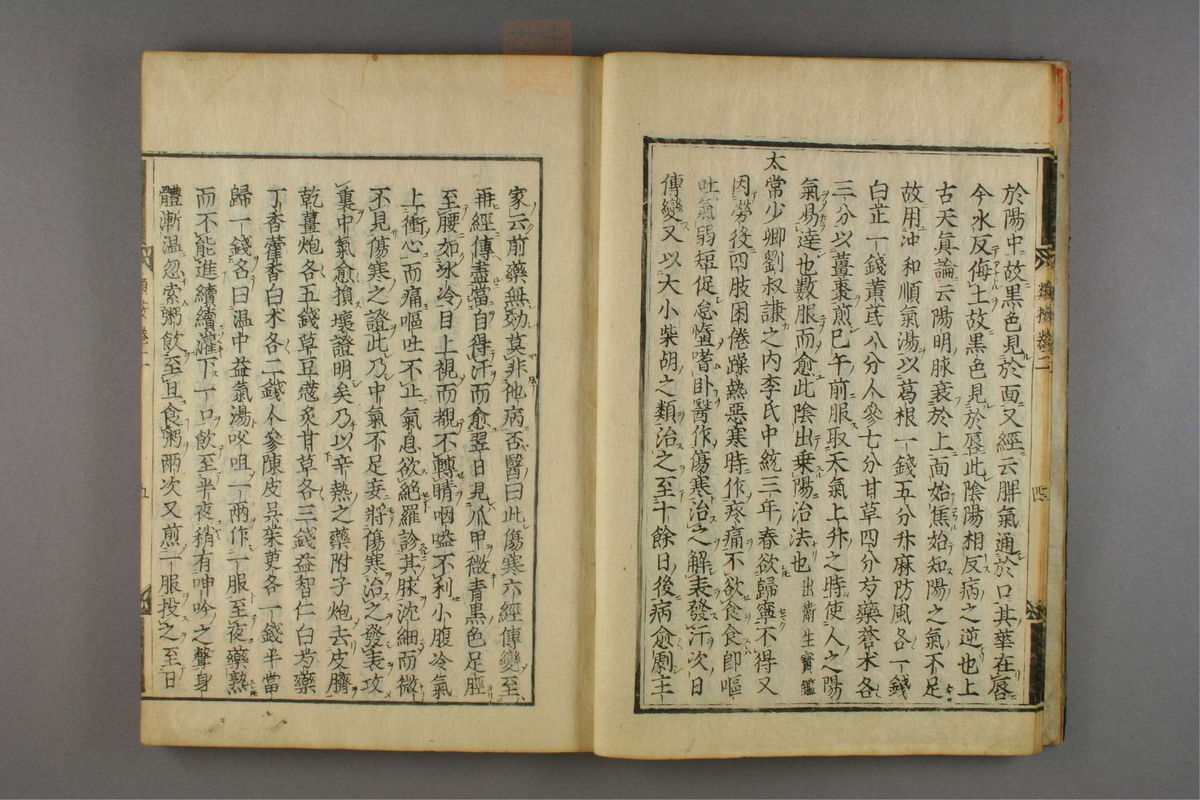 於陽中故黒色見於面又經云脾氣通於口其華在唇
今水反侮土故黒色見於唇此陰陽相反病之逆也上
古天眞論云陽明脉衰於上面始焦始知陽之氣不足
故用冲和順氣湯以葛根一錢五分升麻防風各一錢
白芷一錢黄芪八分人參七分甘草四分芍藥蒼术各
三分以薑棗煎巳午前服取天氣上升之時使人之陽
氣易達也數服而愈此陰出乗陽治法也出衛生寳鑑
太常少卿劉叔謙之内李氏中統三年春欲歸寧不得又
因勞役四肢困倦躁熱惡寒時作疼痛不欲食食即嘔
吐氣弱短促怠惰嗜卧醫作傷寒治之解表發汗次日
傳變又以大小柴胡之類治之至十餘日後病愈劇主
類按卷二
四
家云前藥無効莫非他病否醫曰此傷寒六經傳變至
再經傳盡當自得汗而愈翌日見爪甲微青黒色足脛
至腰如冰冷目上視而覩不轉睛咽嗌不利小腹冷氣
上衝心而痛嘔吐不止氣息欲絶羅診其脉沈細而微
不見傷寒之證此乃中氣不足妄將傷寒治之發表攻
裏中氣愈損壞證明矣乃以辛熱之藥附子炮去皮臍
乾薑炮各五錢草豆蔲炙甘草各三錢益智仁白芍藥
丁香藿香白术各二錢人參陳皮吳茱萸各一錢半當
歸一錢名曰温中益氣湯㕮咀一兩作一服至夜藥熟
而不能進續續灌下一口飲至半夜稍有呻吟之聲身
體漸温忽索粥飲至旦食粥兩次又煎一服投之至日
五